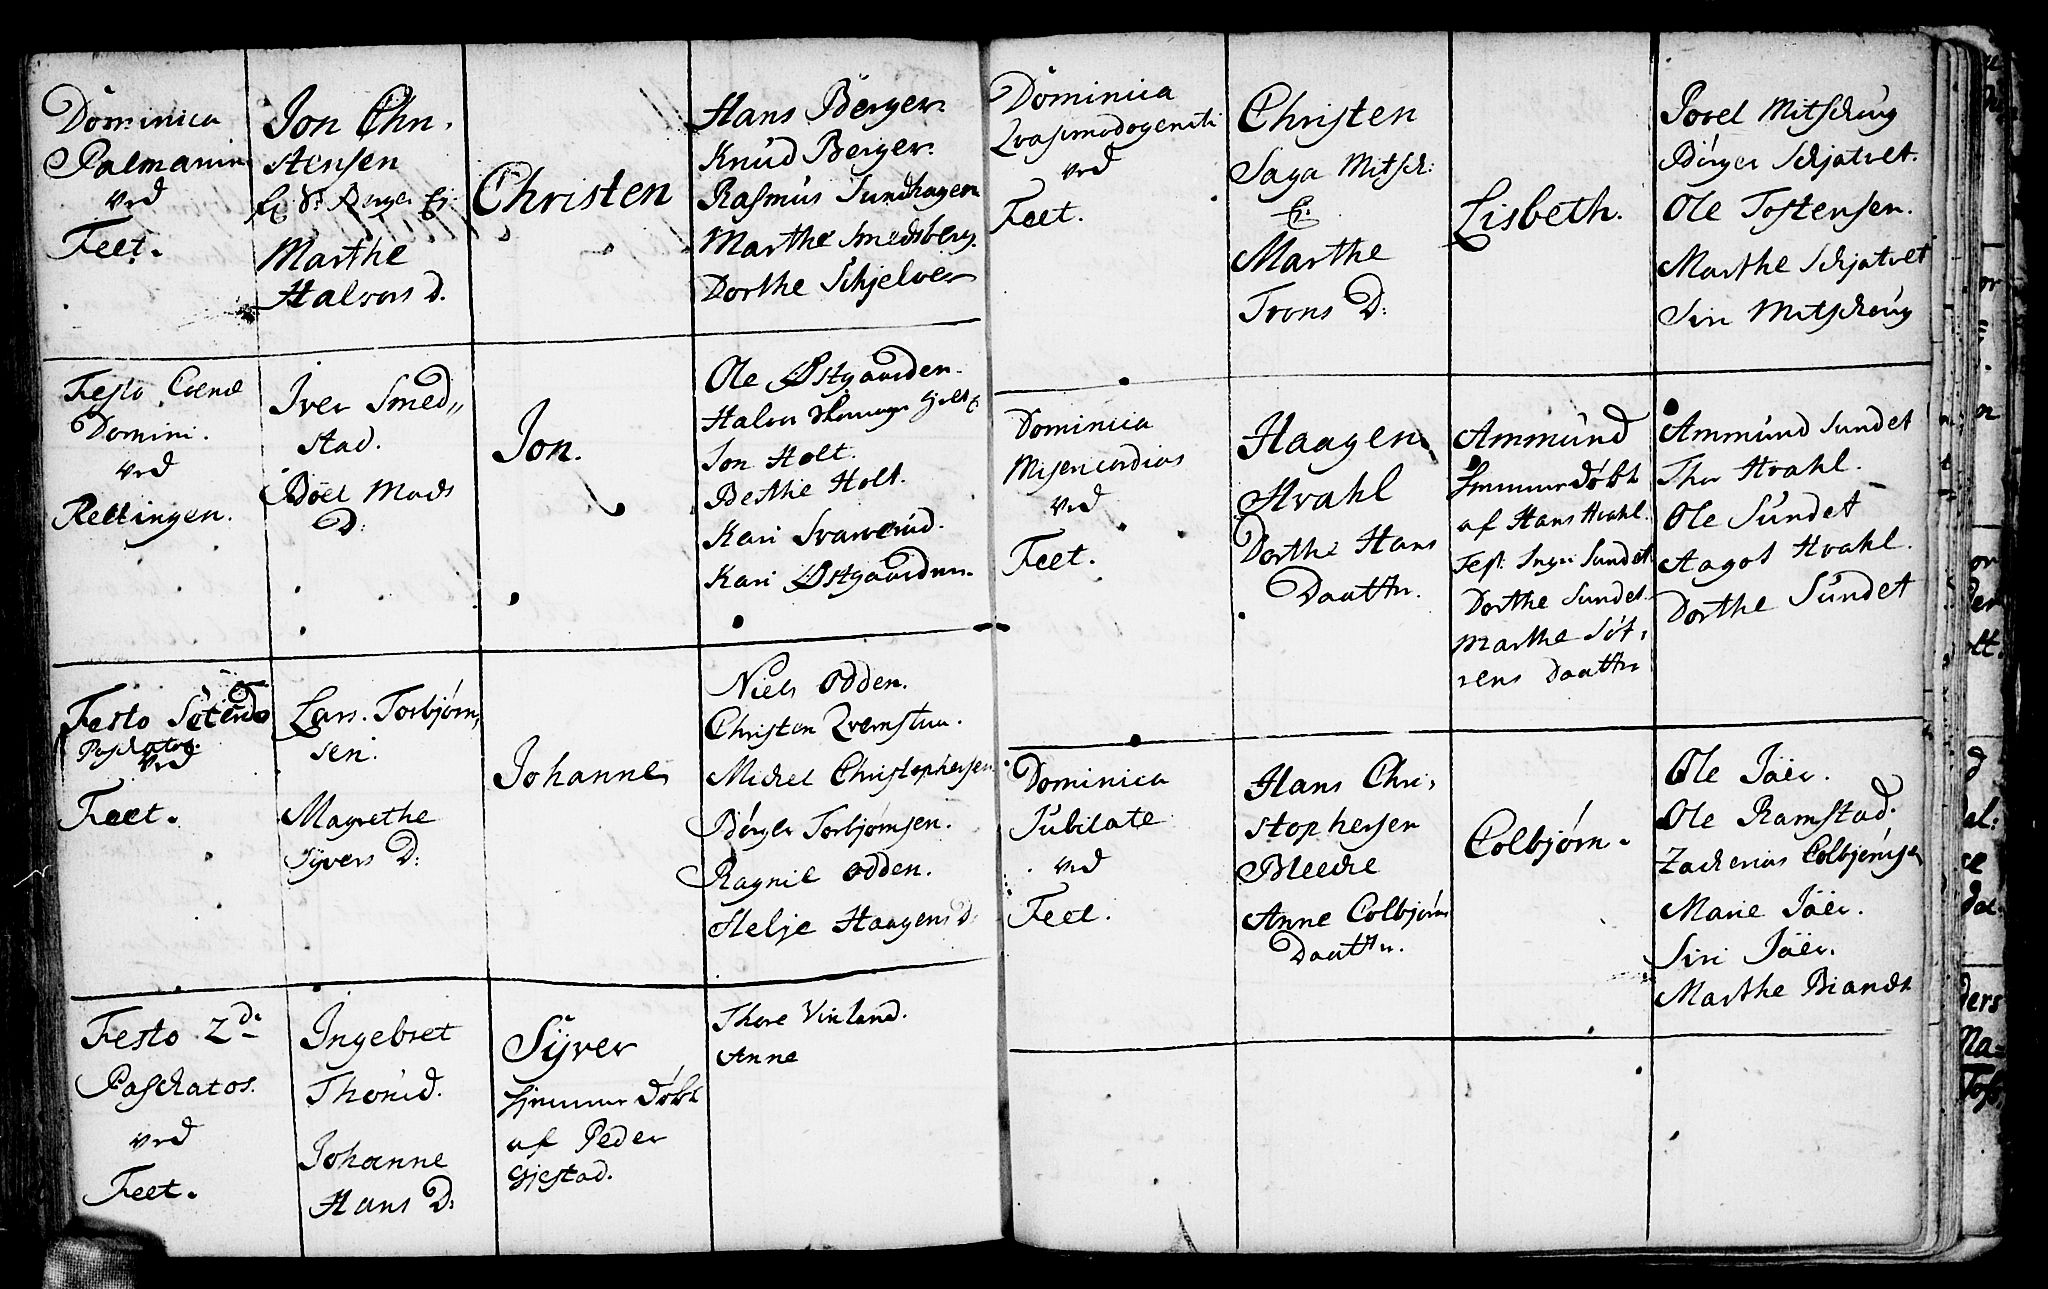 Dominica
Palmarum
ved
Feet.
Jon Chri,
stensen
Marthe
Halvors D.
Christen
Hans Berger.
Knud Berger.
Rasmus Sundhagen
Marthe Smedsberg.
Dorthe Schjelver
Festo Coenæ
Domini.
ved
Rellingen.
Iver Smed„
stad.
Böel Mads
D:
Jon.
Ole Østgaarden.
Halvor
Jon Holt.
Berthe Holt.
Kari Svarverud.
Kari Østgaarden.
Festo
Paschatos.
ved
Feet.
Lars Torbjørn,
sen.
Magrethe
Syvers D:
Johanne
Niels Odden.
Christen Qvernstuu.
Michel Christophersen
Børger Torbjørnsen.
Ragnil Odden.
Helje Haagens D:
Festo 2di
Paschatos.
ved
Feet.
Ingebret
Thorud.
Johanne
Hans D:
Syver
hjemmedøbt
af Peder
Gjestad.
Thore Vinland.
Anne
Dominica
Qvasimodogeniti
ved
Feet.
Christen
Saga Mitsch:
E:
Marthe
Trons D:
Lisbeth.
Povel Mitscheug
Børger Schjatvet.
Ole Tostensen.
Marthe Schjatvet
Siri Mitscheug
Dominica
Misericordias
ved
Feet.
Haagen
Hvahl
Dorthe Hans
Daatter.
Ammund
hjemmedøbt
af Hans Hvahl.
Test: Inger Sundet
Dorthe Sundet.
Marthe Sø,
rens Daatter
Ammund Sundet
Thor Hvahl.
Ole Sundet
Aagot Hvahl.
Dorthe Sundet
Dominica
Jubilate
ved
Feet.
Hans Chri,
stophersen
Bleeche
Anne Colbjørns
Daatter.
Colbjørn.
Ole Jäer.
Ole Ramstad.
Zacherias Colbjørnse
Marie Jäer.
Siri Jäer.
Marthe Brandt